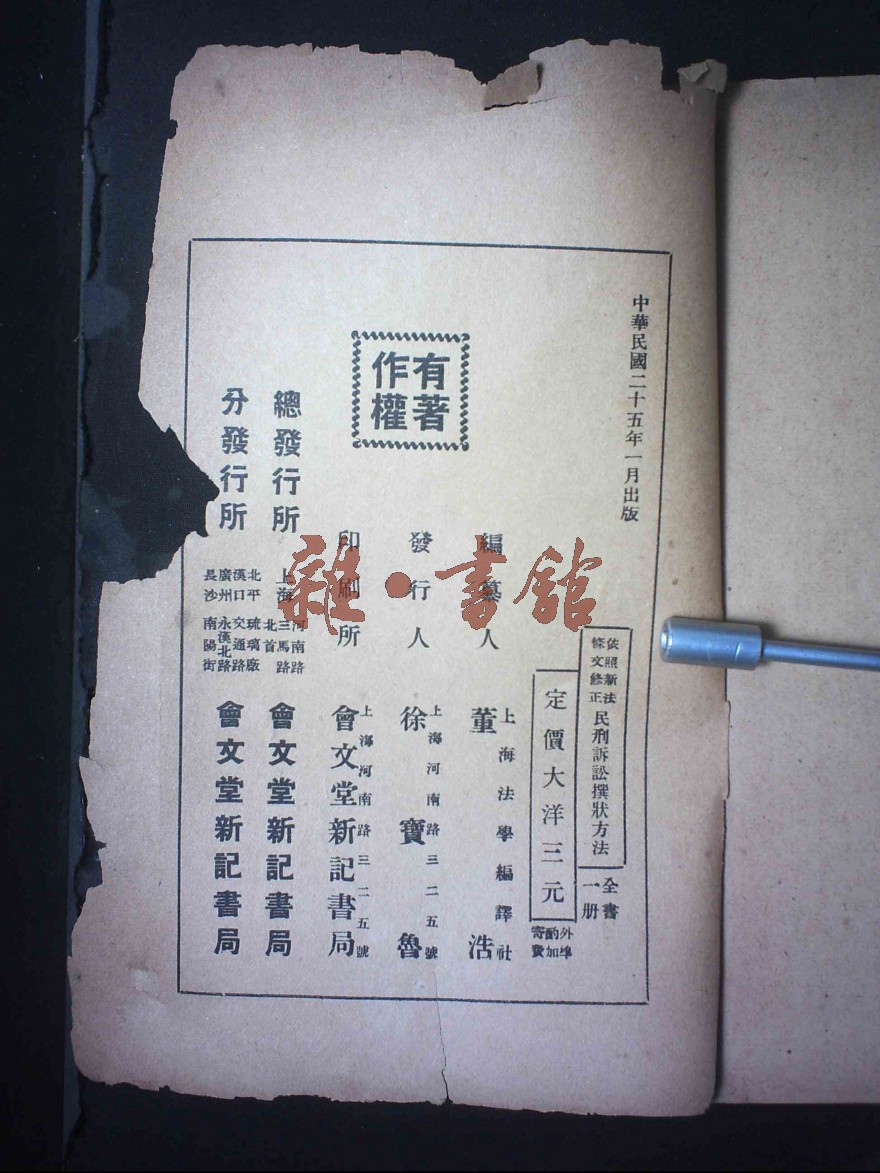 中華民國二十五年一月出版
依照新法
條文修正
民刑訴訟撰狀方法
全書
一册
定價大洋三元
外埠
酌加
寄費
有著
作權
編纂人
上海法學編譯社
董浩
發行人
上海河南路三二五號
徐寶魯
印刷所
上海河南路三二五號
會文堂新記書局
總發行所
上海
河南路
三馬路
北首
會文堂新記書局
分發行所
北平 琉璃廠
漢口 交通路
廣州 永漢北路
長沙 南陽街
會文堂新記書局
雜·書館